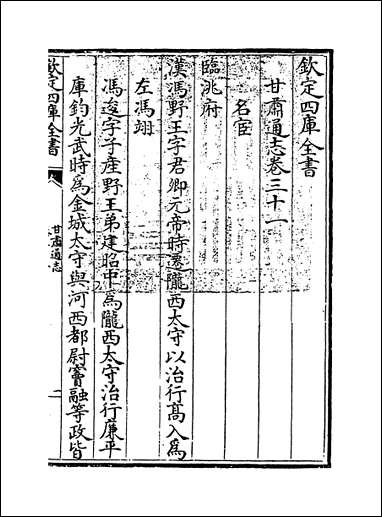 欽定四庫全書
甘肅通志卷三十一
名宦
臨洮府
漢馮野王字君卿元帝時遷隴西太守以治行髙入為
左馮翊
馮逡字子產野王弟建昭中為隴西太守治行廉平
庫鈞光武時為金城太守與河西都尉竇融等政皆
欽定四庫全書
甘肅通志
一